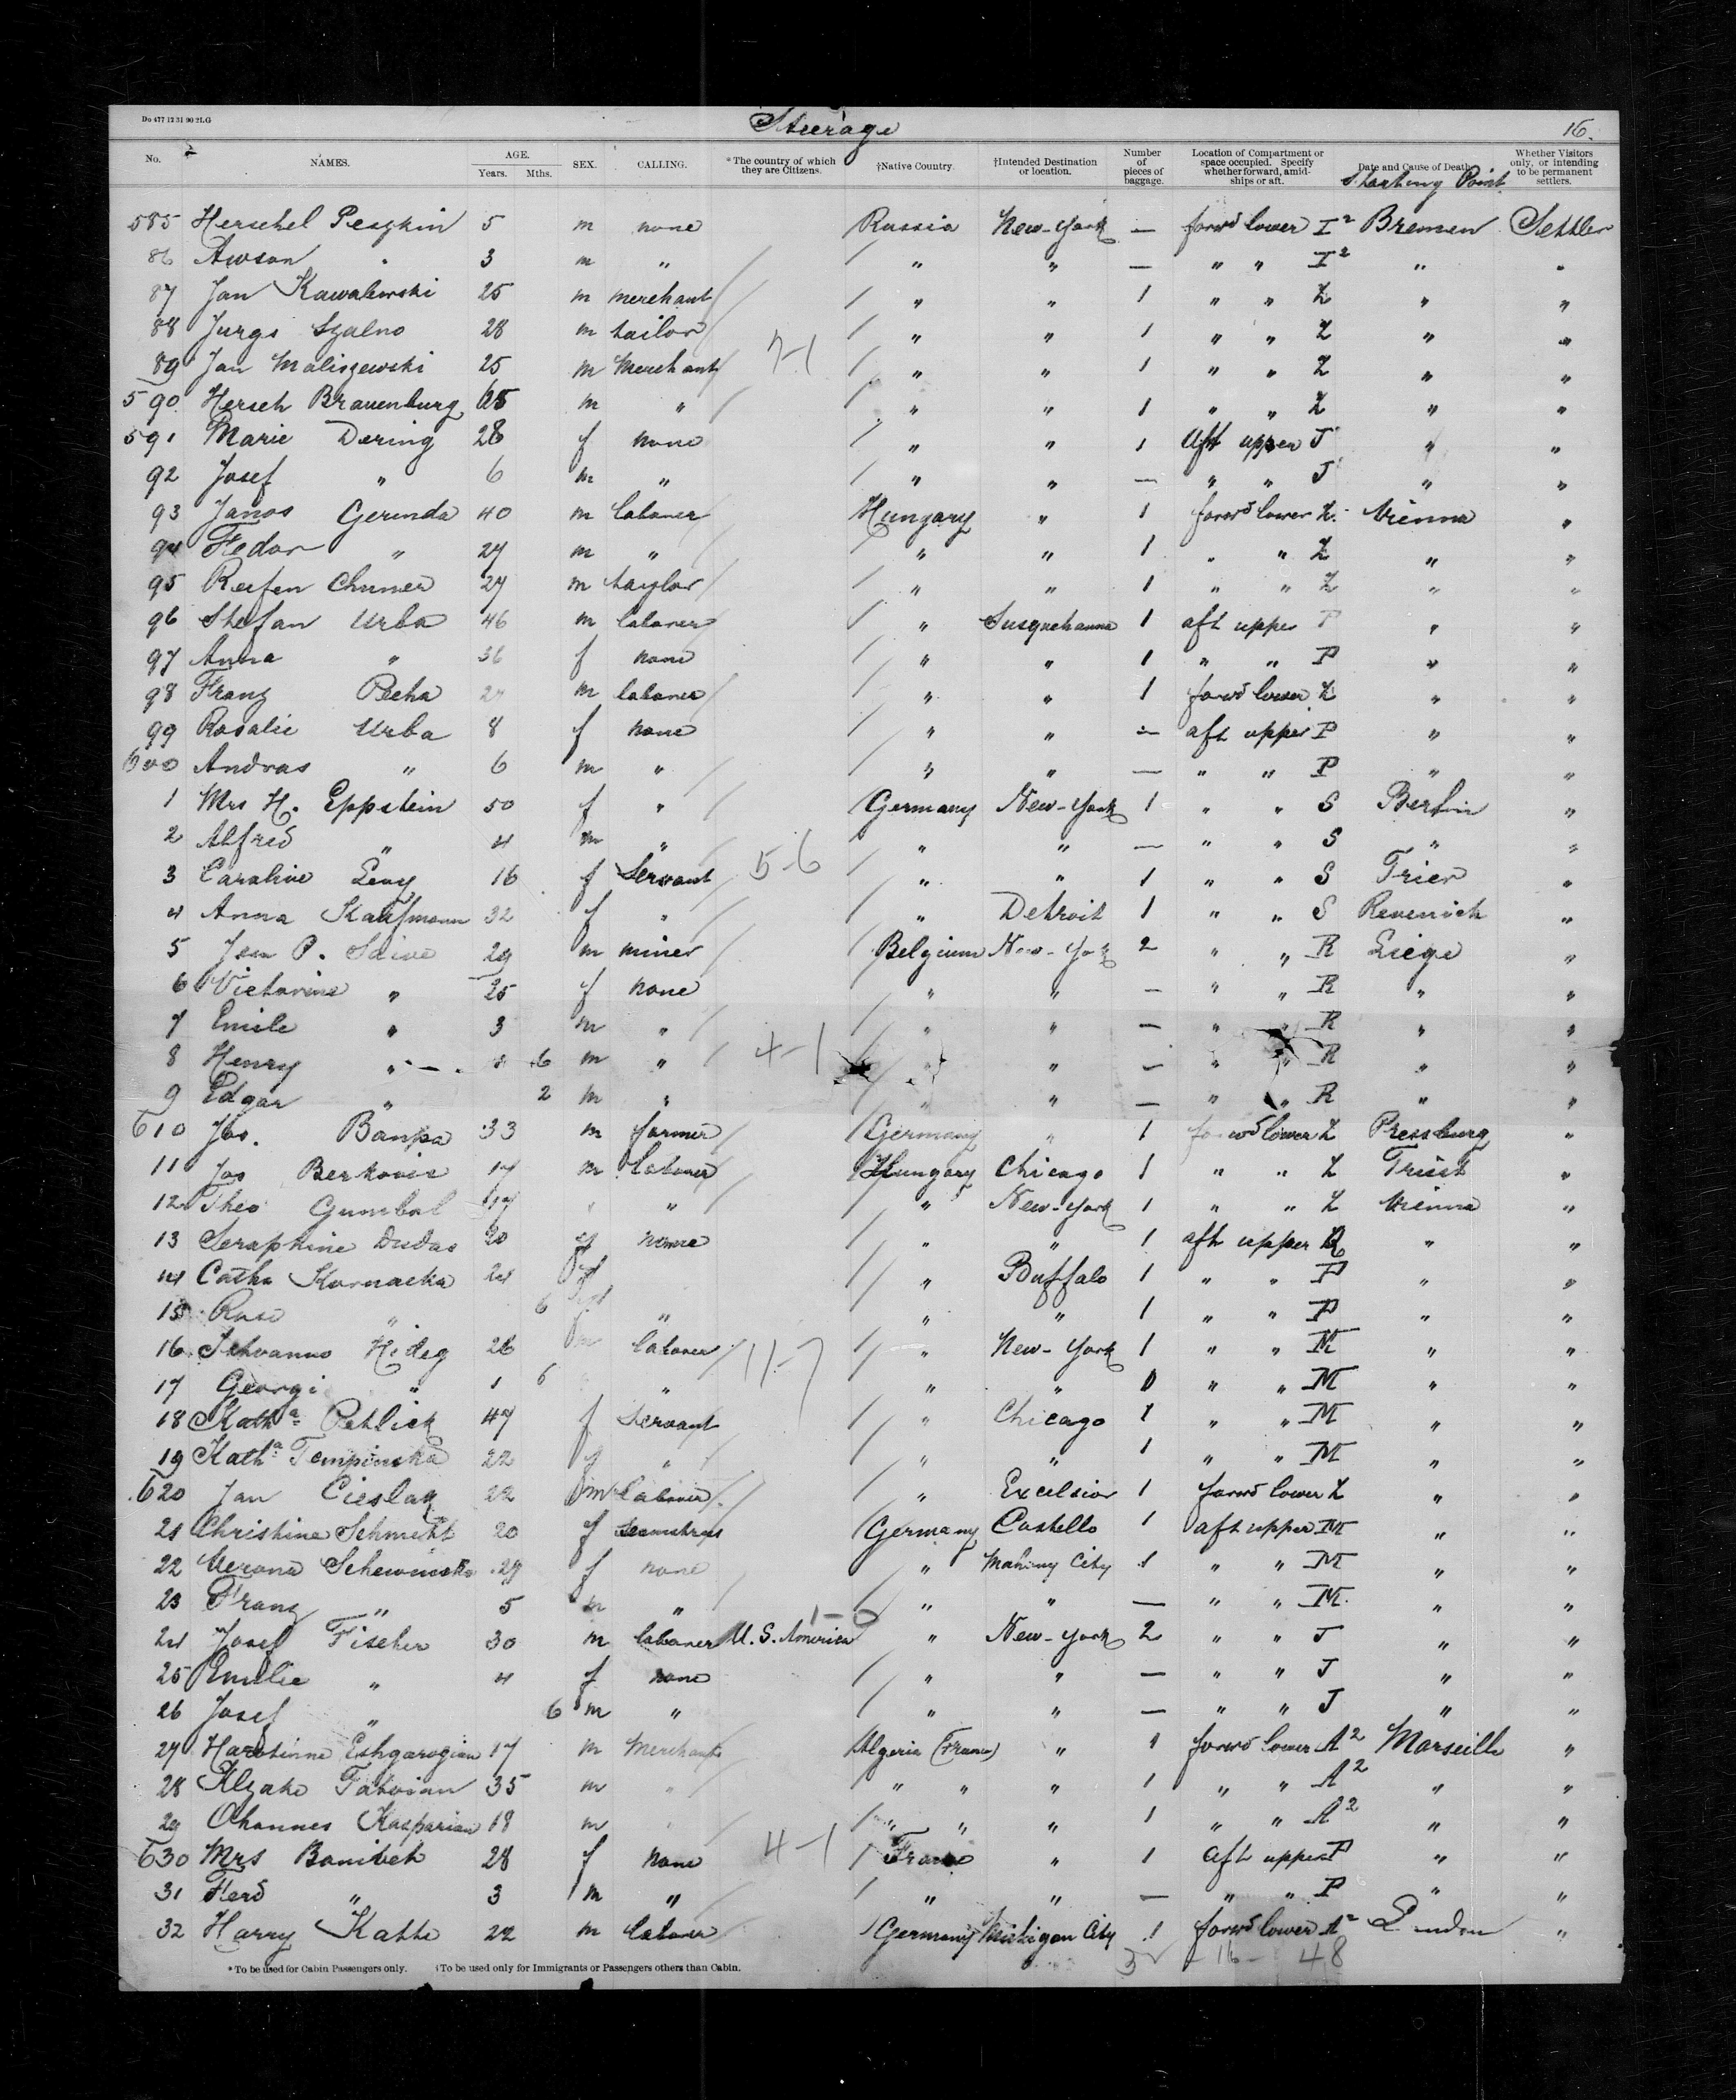 Do 477 12 31 90 2LG
Steerage
16.
No. NAMES. AGE. Years. Mths. SEX. CALLING. *The country of which they are Citizens. †Native Country. †Intended Destination or location. Number of pieces of baggage. Location of Compartment or space occupied. Specify whether forward, amidships or aft. Date and Cause of Death. Starting Point Whether Visitors only, or intending to be permanent settlers.
585 Herschel Peszkin 5 m none Russia New-York — forwd lower I² Bremen Settler
86 Awson " 3 m " / " " — " " I² " "
87 Jan Kawalewski 25 m merchant / " " 1 " " Z " "
88 Jurgs Szalno 28 m tailor / " " 1 " " Z " "
7-1
89 Jan Maliszewski 25 m Merchant / " " 1 " " Z " "
590 Hersch Brauenburg m " / " " 1 " " Z " "
591 Marie Dering 28 f none / " " 1 Aft upper J " "
92 Josef " 6 m " / " " — " " J " "
93 Janos Gerenda 40 m laborer Hungary " 1 forwd lower Z Vienna "
94 Fedor " 27 m " / " " 1 " " Z " "
95 Reifen Chumer 27 m taylor / " " 1 " " Z " "
96 Stefan Urba 46 m laborer / " Susquehanna 1 aft upper P " "
97 Anna " 36 f none / " " 1 " " P " "
98 Franz Pecha 27 m laborer / " " 1 forwd lower Z " "
99 Rosalie Urba 8 f none / " " — aft upper P " "
600 Andras " 6 m " / " " — " " P " "
1 Mrs H. Eppstein 50 f " / Germany New-York 1 " " S Berlin "
2 Alfred " 4 m " / " " — " " S " "
5-6
3 Caroline Levy 16 f Servant / " " 1 " " S Trier "
4 Anna Kaufmann 32 f " / " Detroit 1 " " S Revenich "
5 Jean P. Saive 29 m miner / Belgium New-York 2 " " R Liege "
6 Victorine " 25 f none / " " — " " R " "
7 Emile " 3 m " / " " — " " R " "
4-1
8 Henry " 6 m " / " " — " " R " "
9 Edgar " 2 m " / " " — " " R " "
610 Jos. Banpa 33 m farmer / Germany " 1 forwd lower Z Pressburg "
11 Jos Berkovis 17 m laborer / Hungary Chicago 1 " " Z Triest "
12 Theo Gumbal 17 " " / " New-York 1 " " Z Vienna "
13 Seraphine Dudas 20 f none / " " 1 aft upper R " "
14 Cath. Kornacka 24 f / " Buffalo 1 " " P " "
15 Rosa " 6 " / " " 1 " " P " "
16 Hideg 26 m laborer / " New-York 1 " " M " "
11-7
17 Georgi " 1 6 " / " " " " M " "
18 Katha Pehlick 47 f Servant / " Chicago 1 " " M " "
19 Katha Tempinska 22 f " / " " 1 " " M " "
620 Jan Cieslak 22 m laborer / " Excelsior 1 forwd lower Z " "
21 Christine Schmitt 20 f Seamstress / Germany Costello 1 aft upper M " "
22 Verona 29 f none " Mahiny City 1 " " M " "
23 Franz " 5 m " / " " — " " M " "
1-0
24 Josef Fischer 30 m laborer U.S. America " New-York 2 " " J " "
25 Emilie " 4 f none / " " — " " J " "
26 Josef " 6 m " / " " — " " J " "
27 Eshgarogian 17 m Merchant Algeria (France) " 1 forwd lower A² Marseille "
28 Tatoian 35 m " / " " " 1 " " A² " "
29 Ohannes Kasparian 18 m " / " " " 1 " " A² " "
4-1
630 Mrs Banitch 28 f none / France " 1 Aft upper P " "
31 Ferd " 3 m " / " " — " " P " "
32 Harry Katte 22 m laborer / Germany Michigan City 1 forwd lower A² London "
- 16 - 48
*To be used for Cabin Passengers only. †To be used only for Immigrants or Passengers others than Cabin.